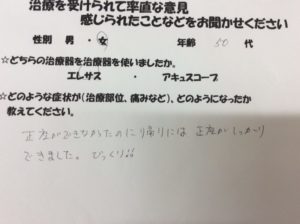 治療を受けられて率直な意見
感じられたことなどをお聞かせください
性別 男・女 年齢 50 代
☆どちらの治療器を治療器を使いましたか。
エレサス ・ アキュスコープ
☆どのような症状が(治療部位、痛みなど)、どのようになったか
教えてください。
正座ができなかったのに帰りには 正座がしっかり
できました。 びっくり!!